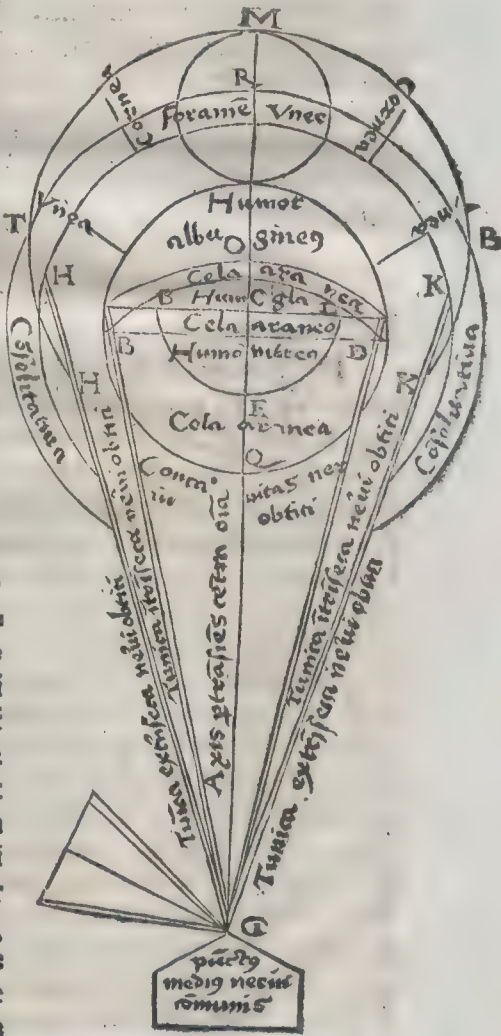 M
Cornea
R
Cornea
foramē Vnee
T
Vnea
Vnea
B
Humor
albugineꝰ
O
H
K
Cela aranea
B Humor Cela D
Cela aranea
B Humo vitreꝰ D
Cōsolidatiua
Cōsolidatiua
H
K
E
Cela aranea
Q
Concauitas nerui
obtici
Tunica extrīseca nerui obtici
Tunica ītrīseca nerui obtici
Axis trāsiēs cētra oīa
Tunica ītrīseca nerui obtici
Tunica extrīseca nerui obtici
G
pūctꝰ
mediꝰ nerui
cōmunis